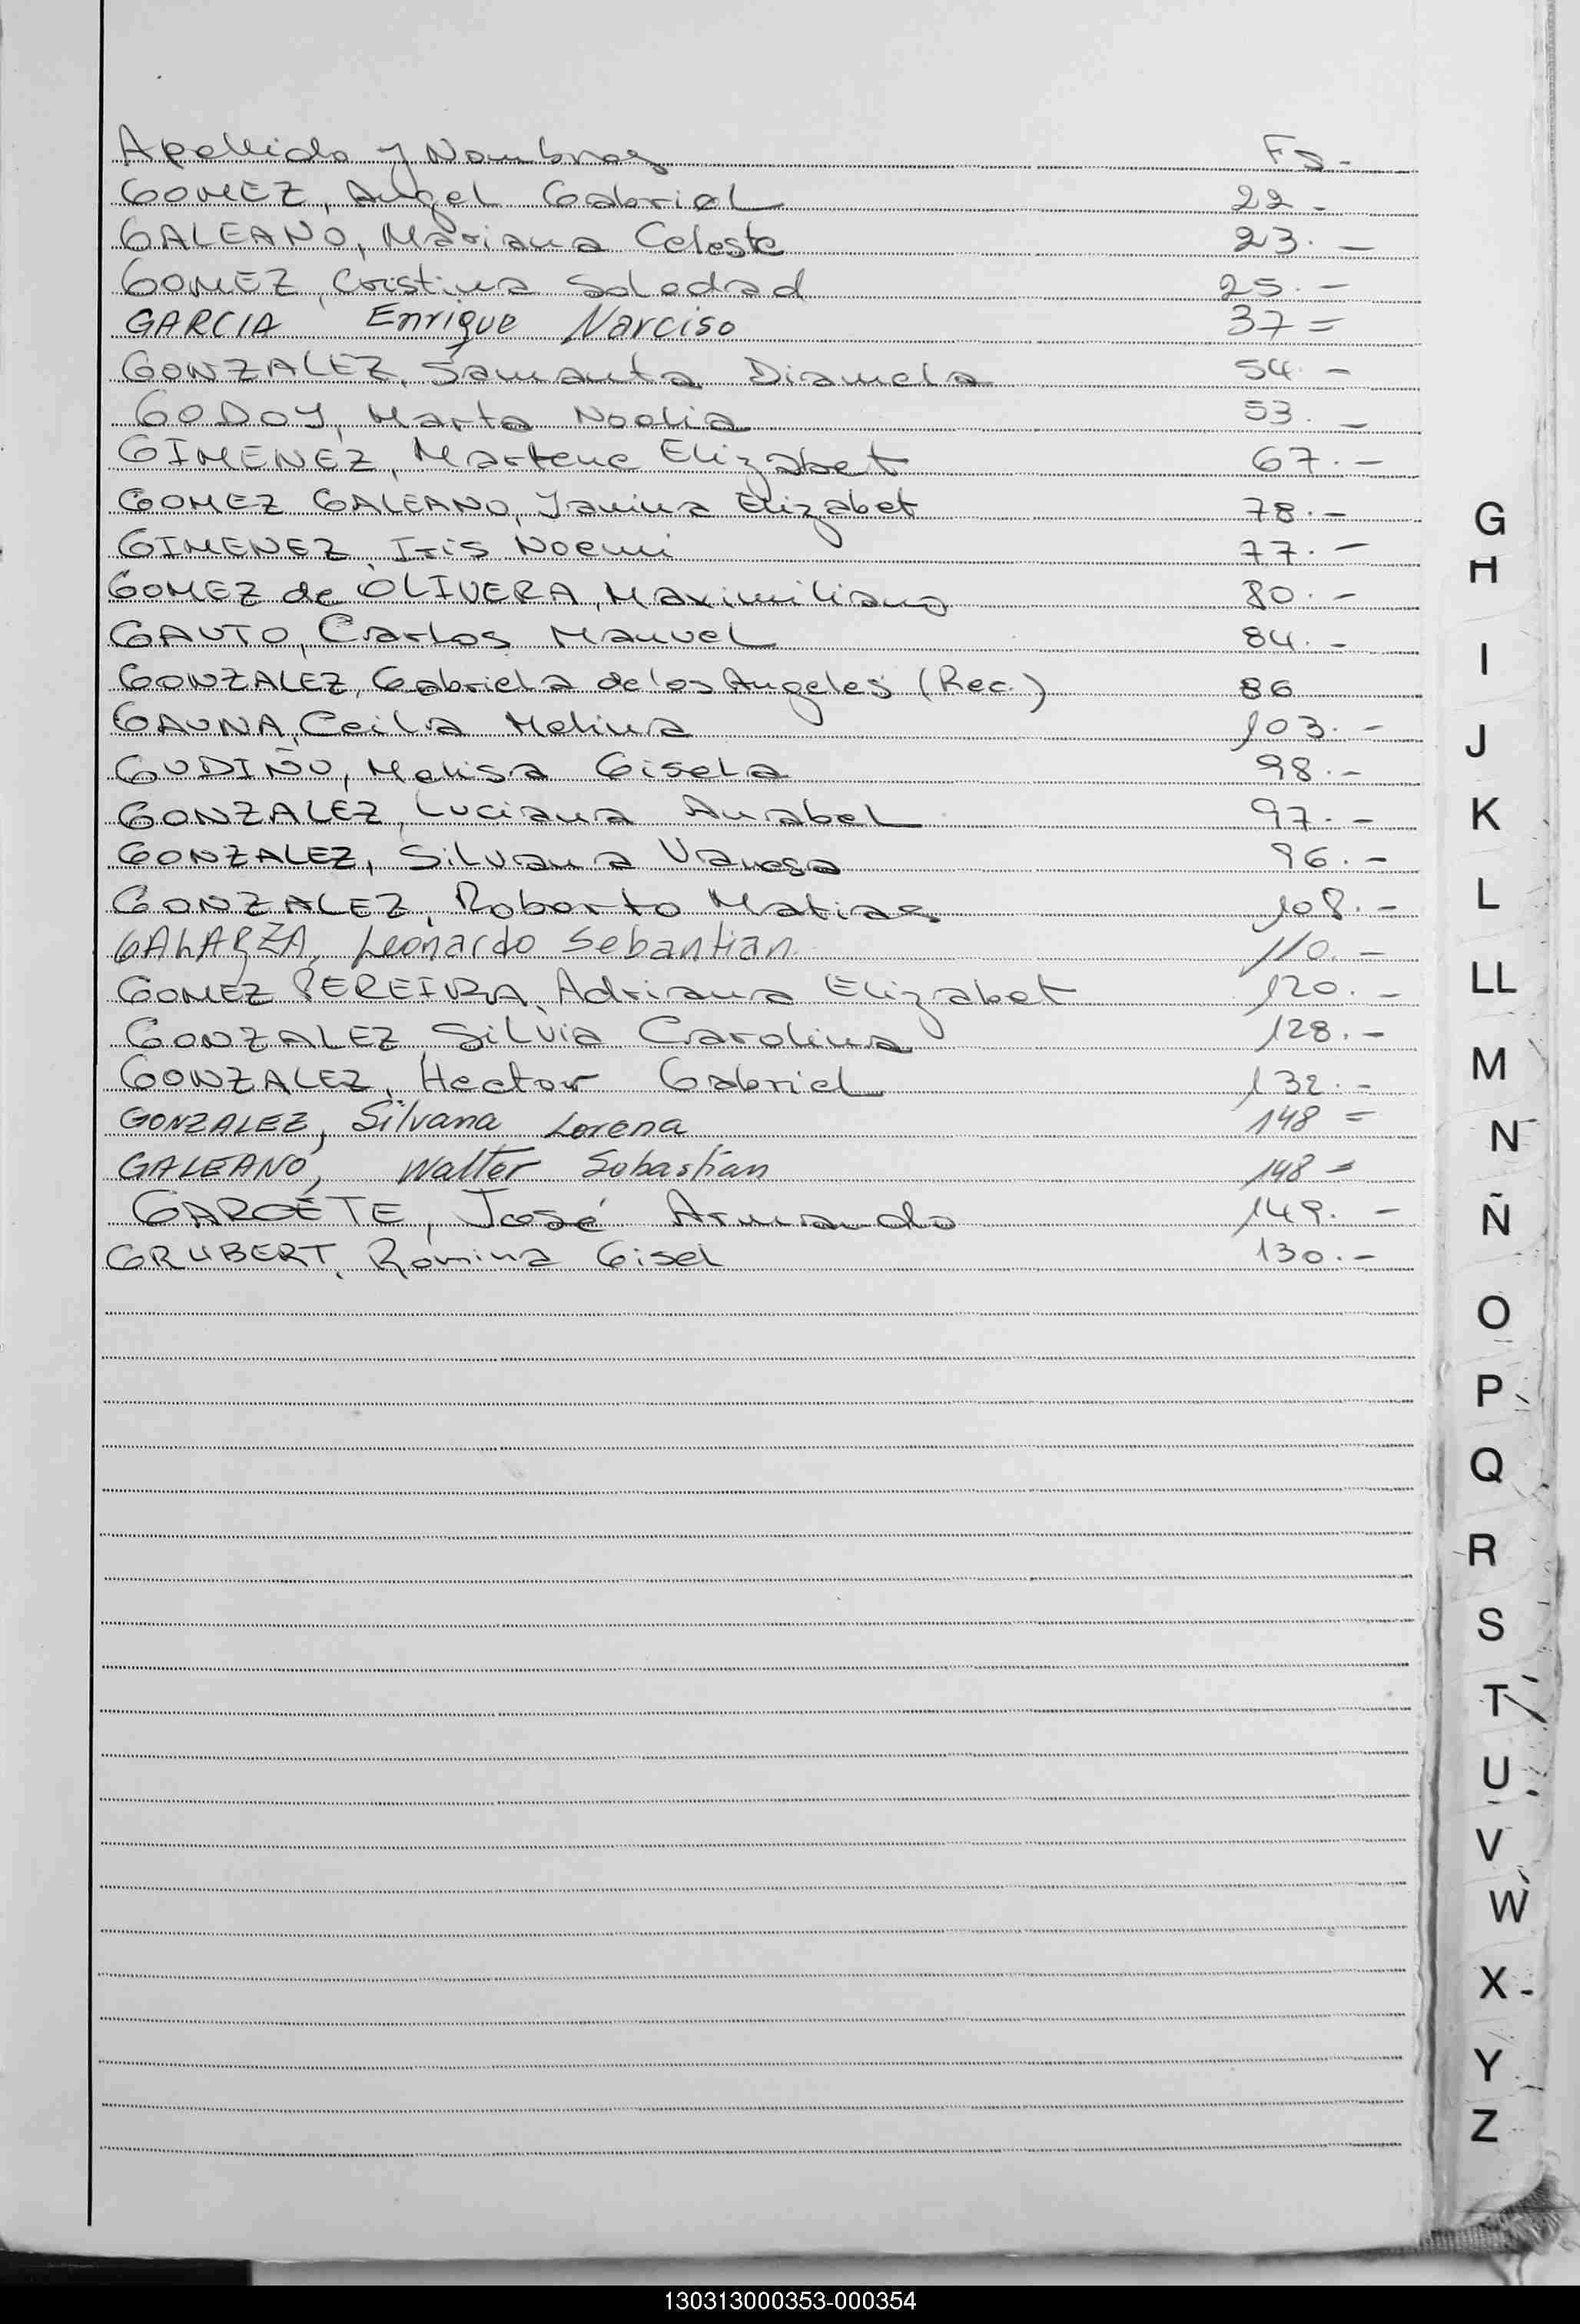 Apellido y Nombres Fs-
GOMEZ, Angel Gabriel 22-
GALEANO, Mariana Celeste 23.-
GOMEZ, Cristina Soledad 25.-
GARCIA Enrique Narciso 37=
GONZALEZ, Samanta Diamela 54.-
GODOY, Marta Noelia 53.-
GIMENEZ, Marlene Elizabet 67.-
GOMEZ GALEANO, Yanina Elizabet 78.-
GIMENEZ, Iris Noemi 77.-
GOMEZ de OLIVERA, Maximiliano 80.-
GAUTO, Carlos Manuel 84.-
GONZALEZ, Gabriela de los Angeles (Rec.) 86
GAUNA, Ceilia Melina 103.-
GUDIÑO, Melisa Gisela 98.-
GONZALEZ, Luciana Anabel 97.-
GONZALEZ, Silvana Vanesa 96.-
GONZALEZ, Roberto Matias 108.-
GALARZA, Leonardo Sebantian. 110.-
GOMEZ PEREIRA, Adriana Elizabet 120.-
GONZALEZ, Silvia Carolina 128.-
GONZALEZ, Hector Gabriel 132.-
GONZALEZ, Silvana Lorena 148=
GALEANO, Walter Sebastian 148=
GAROETE, José Armando 149.-
GRUBERT, Romina Gisel 130.-
G
H
I
J
K
L
LL
M
N
Ñ
O
P
Q
R
S
T
U
V
W
X
Y
Z
130313000353-000354